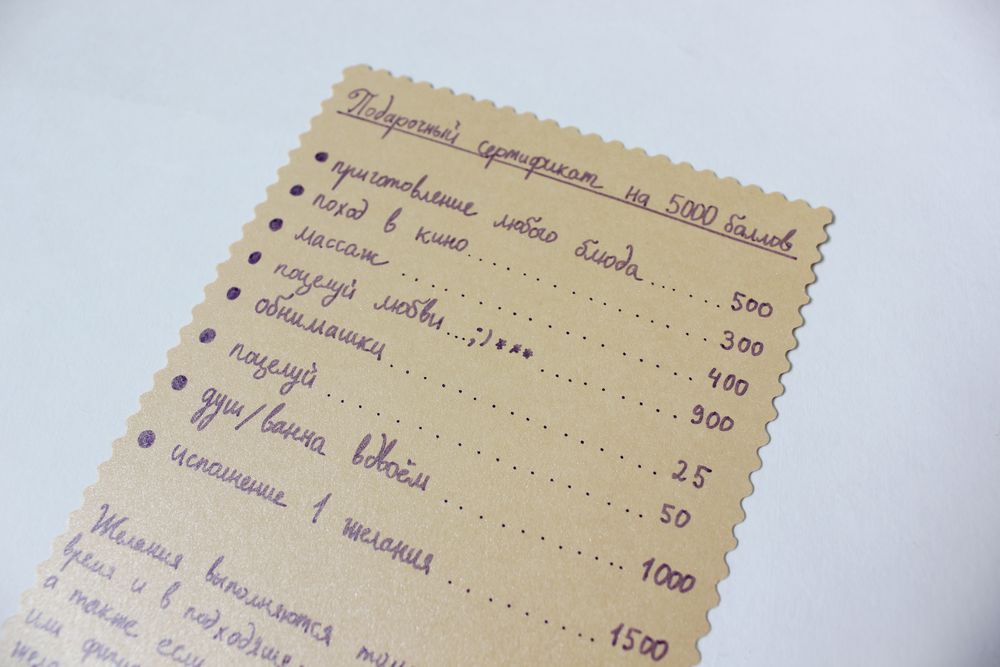 Подарочный сертификат на 5000 баллов
• приготовление любого блюда....... 500
• поход в кино.................... 300
• массаж .................... 400
• поцелуй любви...;)*** ........ 900
• обнимашки .................... 25
• поцелуй .................... 50
• душ/ванна вдвоём ............ 1000
• исполнение 1 желания ......... 1500
Желания выполняются
время и в
а также если
или